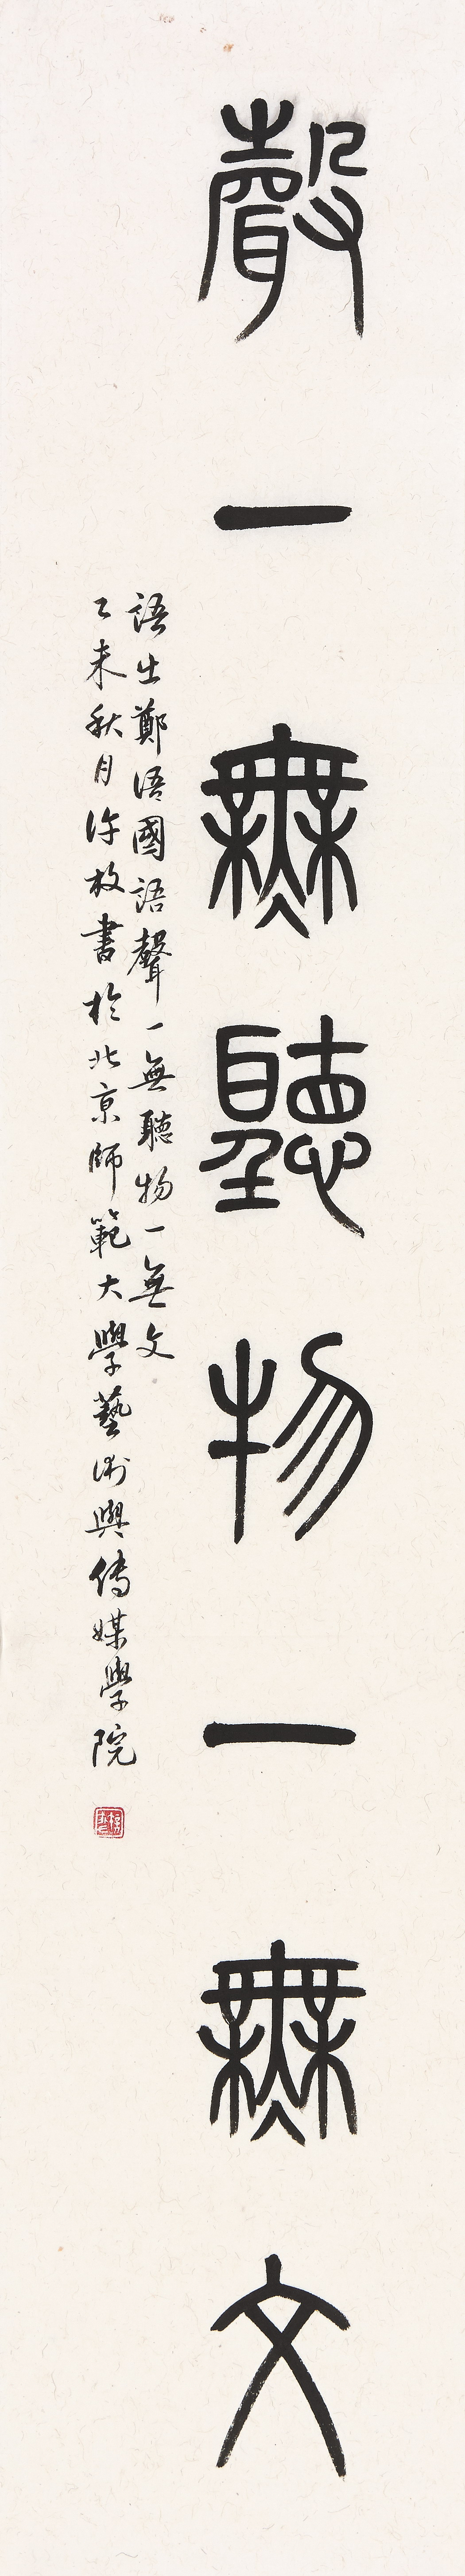 聲一無聽物一無文
語出鄭語國語聲一無聽物一無文
乙未秋月許枚書於北京師範大學藝術與傳媒學院